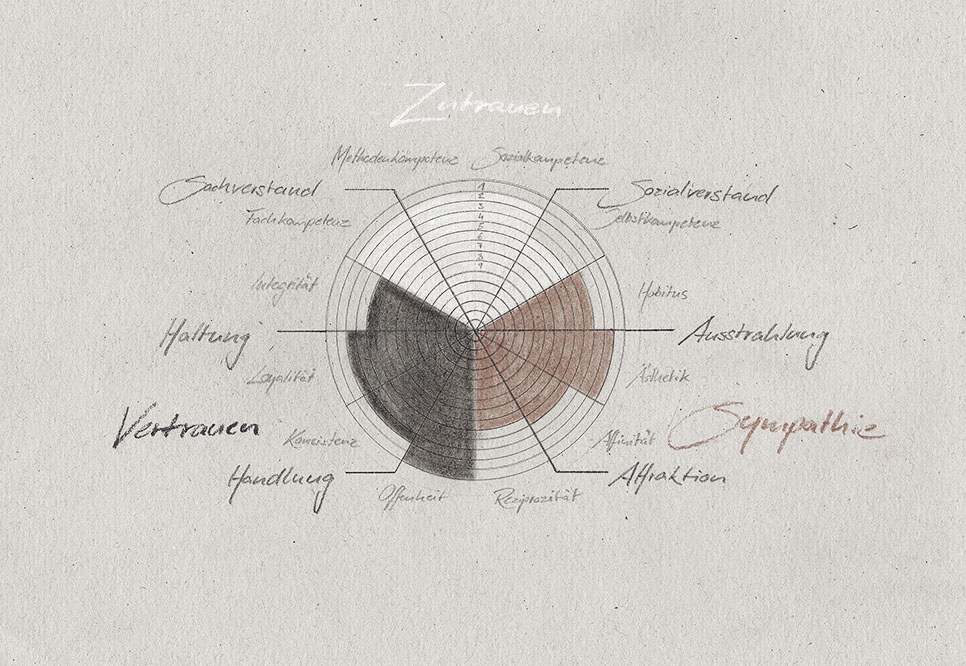 Zutrauen
Methodenkompetenz Sozialkompetenz
Sachverstand Sozialverstand
Fachkompetenz Selbstkompetenz
1
2
3
4
5
6
7
8
9
Integrität Habitus
Haltung Ausstrahlung
Loyalität Ästhetik
Vertrauen Sympathie
Konsistenz Affinität
Handlung Attraktion
Offenheit Reziprozität